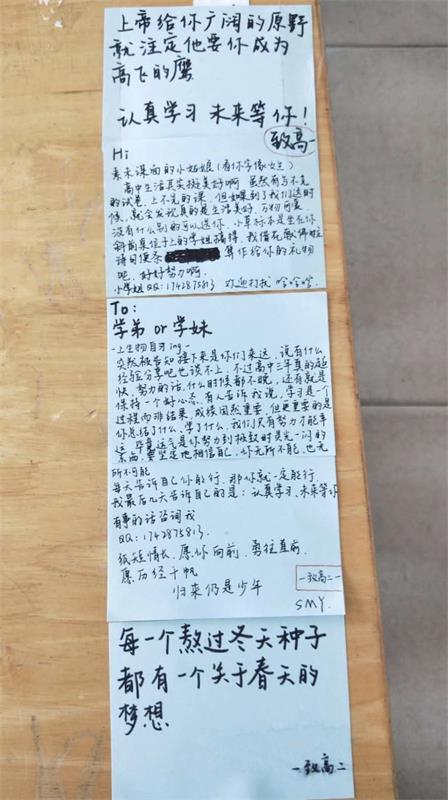 上帝给你广阔的原野
就注定他要你成为
高飞的鹰
认真学习 未来等你!
致高一
Hi
素未谋面的小姑娘(看你字像女生)
高中生活其实挺美好啊 虽然有写不完
的试卷,上不完的课,但如果到了我们这时
候,就会发现真的是生活美好,万物可爱
没有什么别的可以送你,小草标本是坐在你
斜前桌位子上的学姐搞得,我借花献佛啦
请自便亲 算作给你的礼物
吧,好好努力啊,
小学姐QQ:1742875813 欢迎打扰 哈哈哈
To:
学弟 or 学妹
-上生物自习ing-
突然被告知接下来是你们来这,说有什么
经验分享吧也谈不上,不过高中三年真的超
快,努力的话,什么时候都不晚,还有就是
保持一个好心态,有人告诉我说,学习是一个
过程而非结果,成绩固然重要,但更重要的是
你总结了什么,学了什么,我们只有努力才能幸
运,毕竟运气是你努力到极致时灵光一闪的
东西,要坚定地相信自己,你无所不能,也无
所不可能
每天告诉自己你能行,那你就一定能行,
我最后几天告诉自己的是:认真学习,未来等你
有事的话咨询我
QQ:1742875813,
纸短情长,愿你向前,勇往直前,
愿历经千帆
归来仍是少年
一致高二一
SMY.
每一个熬过冬天种子
都有一个关于春天的
梦想
一致高二